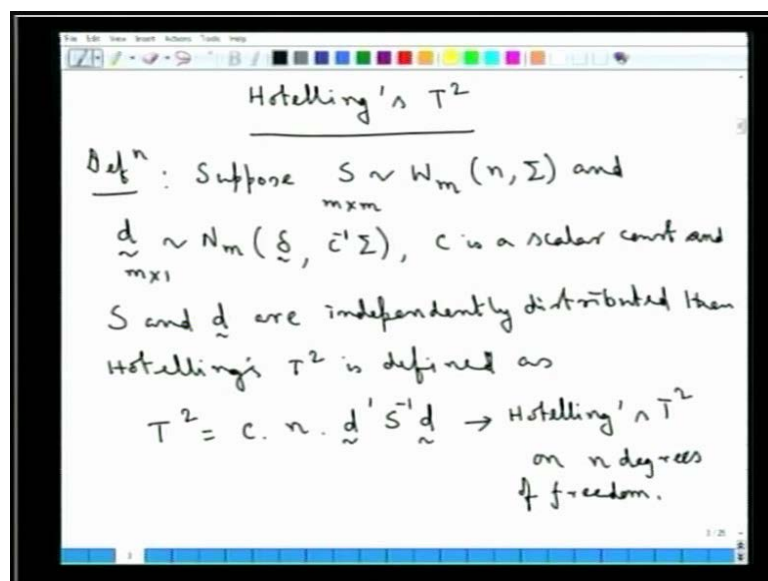 File Edit View Insert Actions Tools Help
Hotelling's T²
Defⁿ : Suppose S ~ W_m (n, Σ) and
m×m
d ~ N_m (δ, c⁻¹Σ), c is a scalar const and
m×1
S and d are independently distributed then
Hotelling's T² is defined as
T² = c. n. d' S⁻¹ d → Hotelling's T²
on n degrees
of freedom.